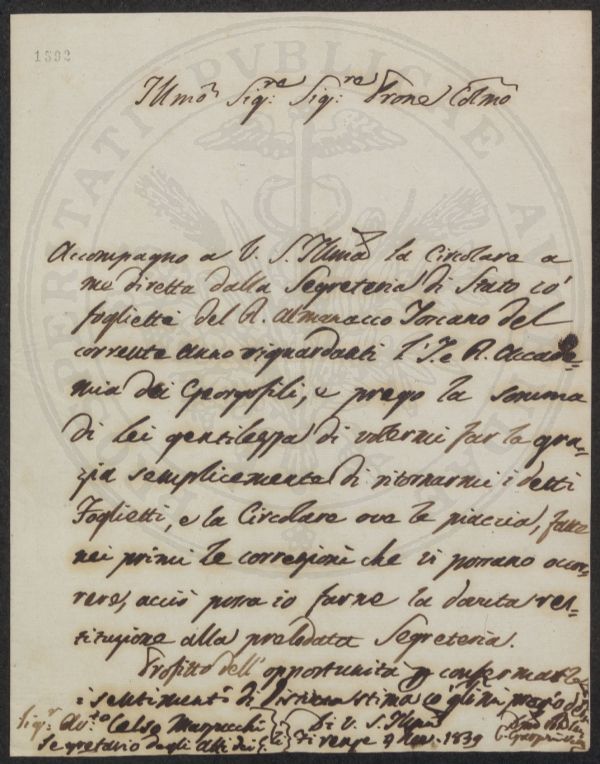 1592
Illmo Sigre: Sigre: Prone Colmo
Accompagno a V. S. Illma la Circolare a
me diretta dalla Segreteria di Stato co'
foglietti del R. Almanacco Toscano del
corrente anno riguardanti l'I. e R. Accade=
mia dei Georgofili, e prego la somma
di lei gentilezza di volermi far la gra=
zia semplicemente di ritornarmi i detti
Foglietti, e la Circolare ove le piaccia, fatte
nei primi le correzioni che vi potranno occor=
rere, acciò possa io farne la dovuta res=
tituzione alla prelodata Segreteria.
Profitto dell'opportunità p confermarle
i sentimenti di
Sigr Avto Celso Marzucchi
Segretario degli Atti dei
Di V. S. Illma
Firenze 9 Nov. 1839